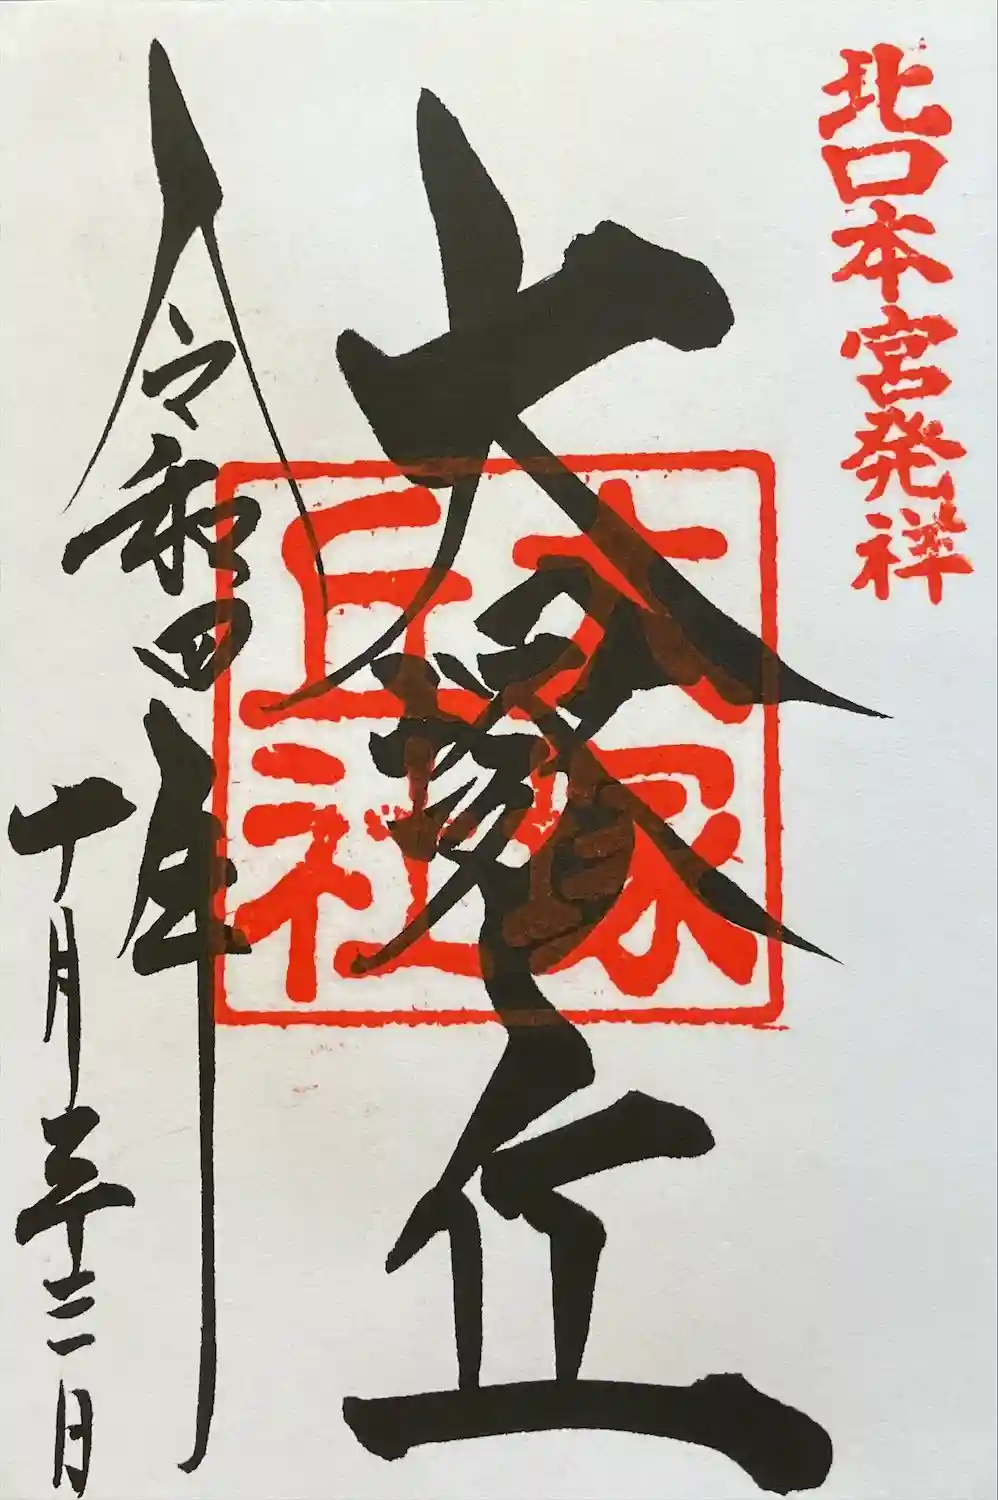 北口本宮発祥
大塚丘
大塚丘社
令和四年
十月二十二日